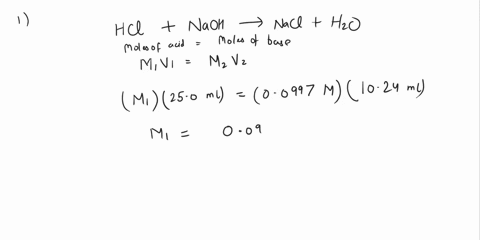 1) HCl + NaOH → NaCl + H2O
Moles of acid = Moles of base
M1V1 = M2V2
(M1)(25.0 mL) = (0.0997 M)(10.24 mL)
M1 = 0.09